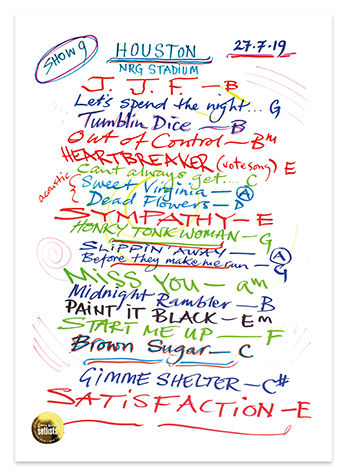 SHOW 9
HOUSTON
27.7.19
NRG STADIUM
J. J. F. — B
Let's spend the night... G
Tumblin Dice — B
Out of Control — Bm
HEARTBREAKER (vote song) E
Can't always get... C
acoustic
Sweet Virginia — A
Dead Flowers — D
SYMPATHY — E
HONKY TONK WOMAN — G
SLIPPIN' AWAY — A
Before they make me run — G
MISS YOU — am
Midnight Rambler — B
PAINT IT BLACK — Em
START ME UP — F
Brown Sugar — C
GIMME SHELTER — C#
SATISFACTION — E
setlists